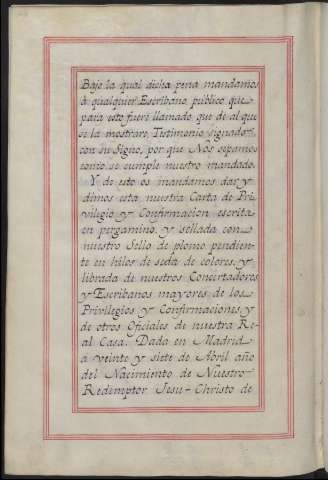 Bajo la qual dicha pena mandamos
à qualquier Escribano publico que
para esto fuere llamado que dè al que
se la mostrare, Testimonio signado
con su Signo, por que Nos sepamos
como se cumple nuestro mandado.
Y de esto os mandamos dar y
dimos esta nuestra Carta de Pri-
vilegio y Confirmacion escrita
en pergamino, y sellada con
nuestro Sello de plomo pendien-
te en hilos de seda de colores, y
librada de nuestros Concertadores
y Escribanos mayores de los
Privilegios y Confirmaciones y
de otros Oficiales de nuestra Re-
al Casa. Dada en Madrid
à veinte y siete de Abril año
del Nacimiento de Nuestro
Redemptor Jesu-Christo de